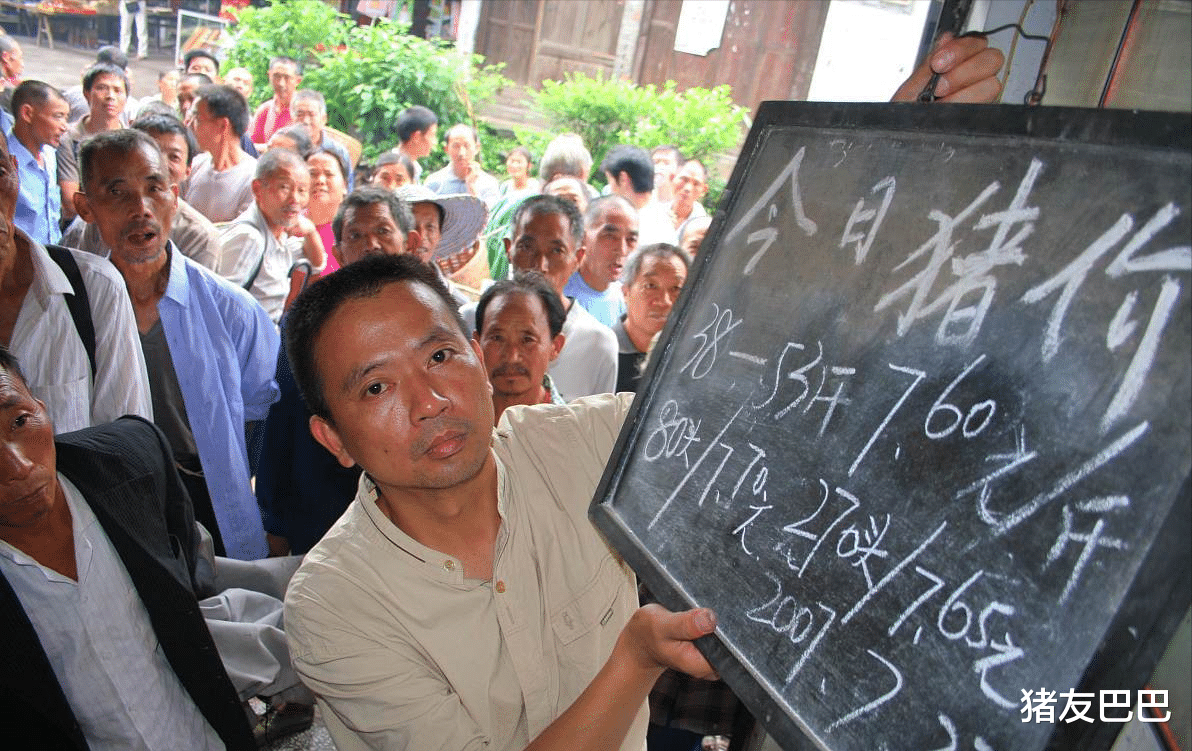 今日猪价
38-53斤 7.60元/斤
80头/7.70元 270头/7.65元
2007.7
猪友巴巴